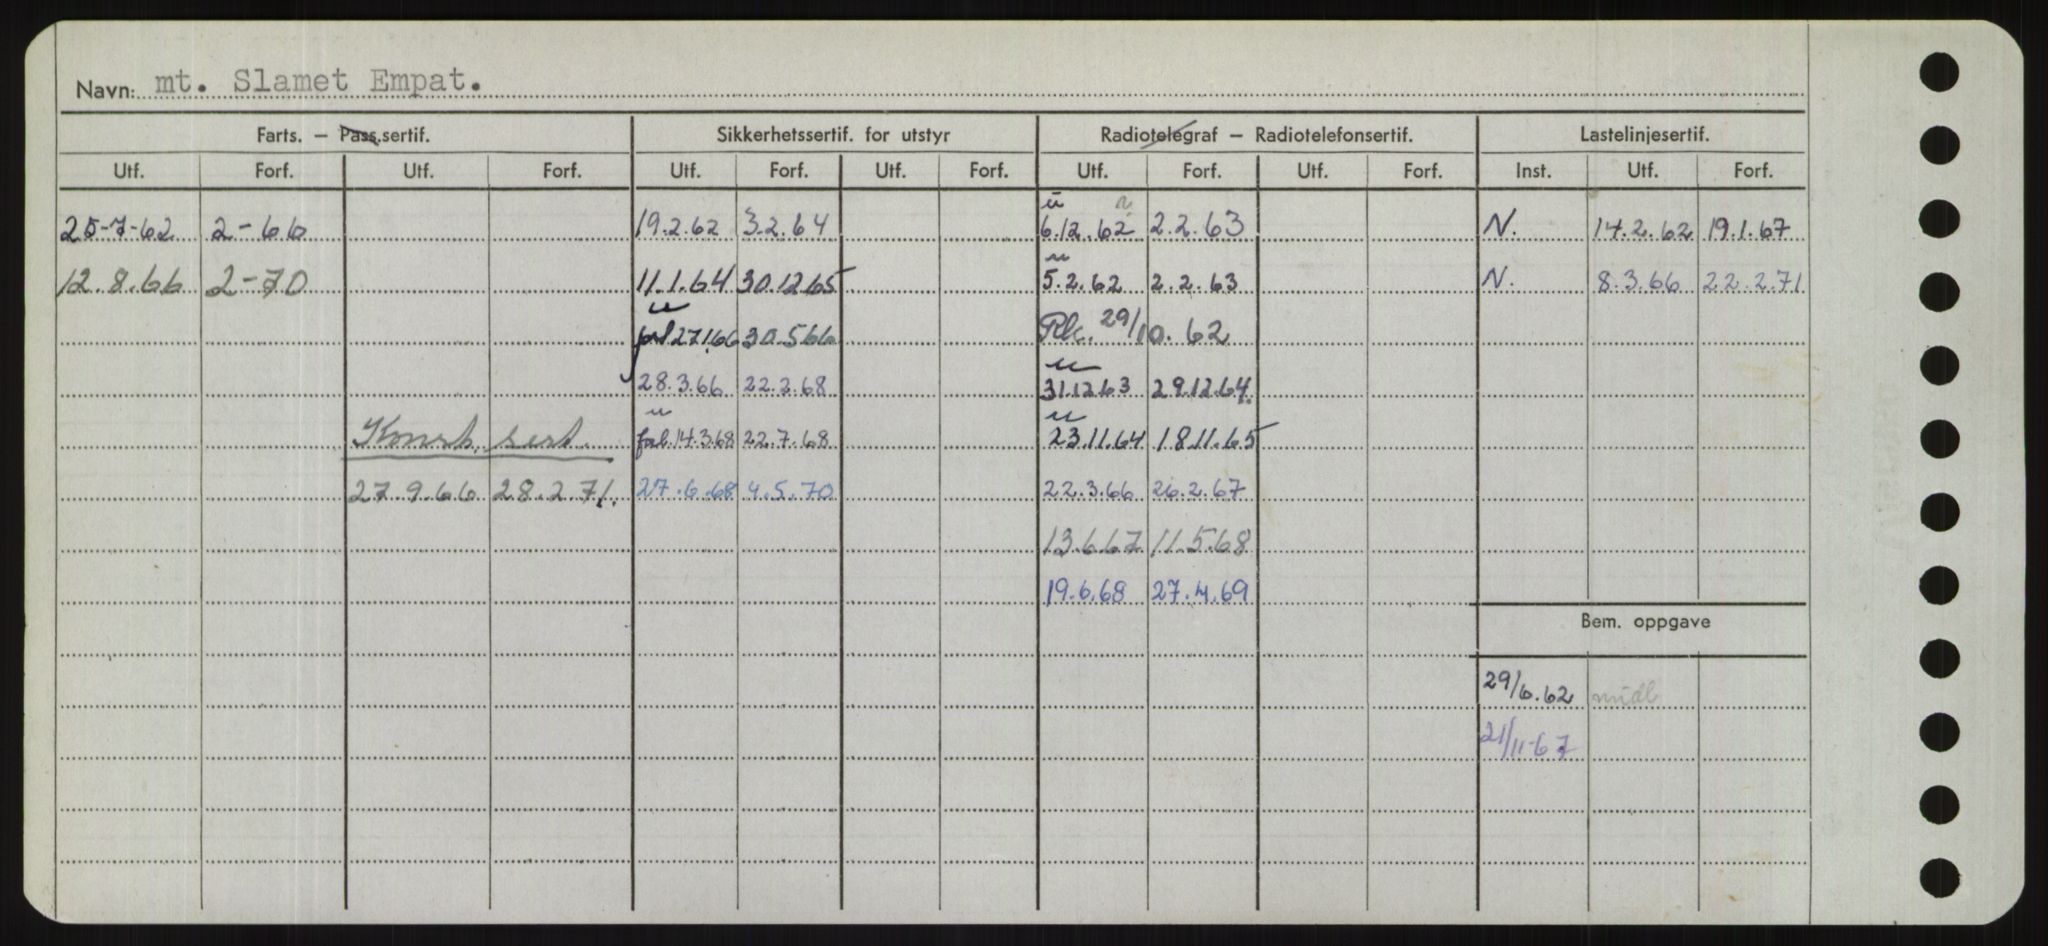 Navn: mt. Slamet Empat.
Farts. — Pass.sertif. Sikkerhetssertif. for utstyr Radiotelegraf — Radiotelefonsertif. Lastelinjesertif.
Utf. Forf. Utf. Forf. Utf. Forf. Utf. Forf. Utf. Forf. Utf. Forf. Inst. Utf. Forf.
u
25-7-62 2-66 19.2.62 3.2.64 6.12.62 2.2.63 N. 14.2.62 19.1.67
u
12.8.66 2-70 11.1.64 30.12.65 5.2.62 2.2.63 N. 8.3.66 22.2.71
u
27.1.66 30.5.66 29/10.62
u
28.3.66 22.2.68 31.12.63 29.12.64.
u u
Konstr. sert. 14.3.68 22.7.68 23.11.64 18.11.65
27.9.66 28.2.71. 27.6.68 4.5.70 22.3.66 26.2.67
13.6.67 11.5.68
19.6.68 27.4.69
Bem. oppgave
29/6.62 midl
21/11-67